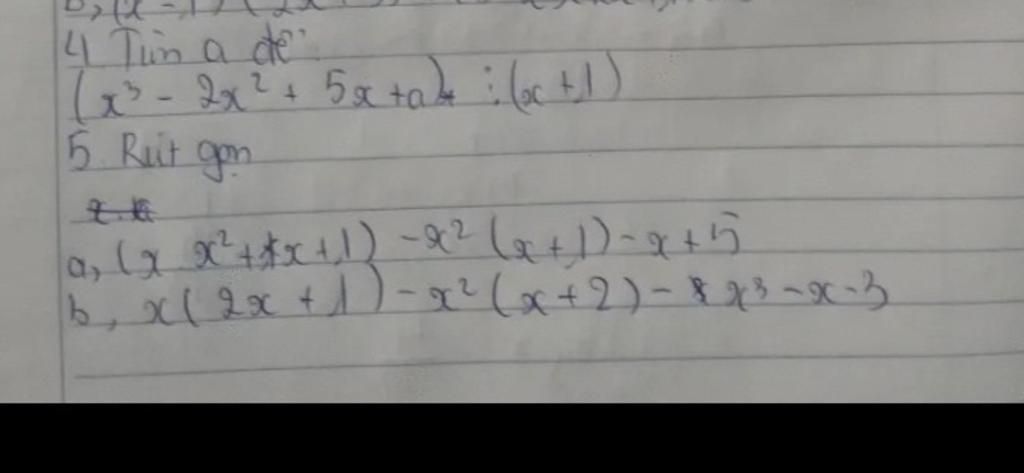 4 Tìm a để
(x³ - 2x² + 5x + a) : (x + 1)
5 Rút gọn
a, (x x² + x + 1) - x² (x + 1) - x + 5
b, x(2x + 1) - x² (x + 2) - x³ - x - 3